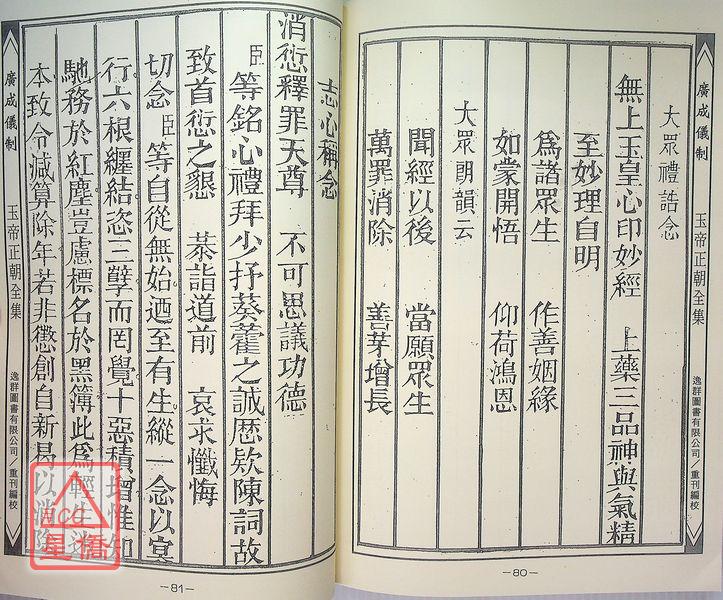 廣成儀制 玉帝正朝全集 逸群圖書有限公司／重刊編校
大眾禮誥念
無上玉皇心印妙經 上藥三品神與氣精
至妙理自明
為諸眾生 作善姻緣
如蒙開悟 仰荷鴻恩
大眾朗韻云
聞經以後 當願眾生
萬罪消除 善芽增長
—80—
志心稱念
消愆釋罪天尊 不可思議功德
臣等銘心禮拜少抒葵藿之誠歷欵陳詞故
致首愆之懇 恭詣道前 哀求懺悔
切念臣等自從無始迺至有生縱一念以寅
行六根纏結恣三孽而罔覺十惡積增惟知
馳務於紅塵豈慮標名於黑簿此為輕生迷
本致令減算除年若非懲創自新曷以消除
廣成儀制 玉帝正朝全集 逸群圖書有限公司／重刊編校
—81—
星橋